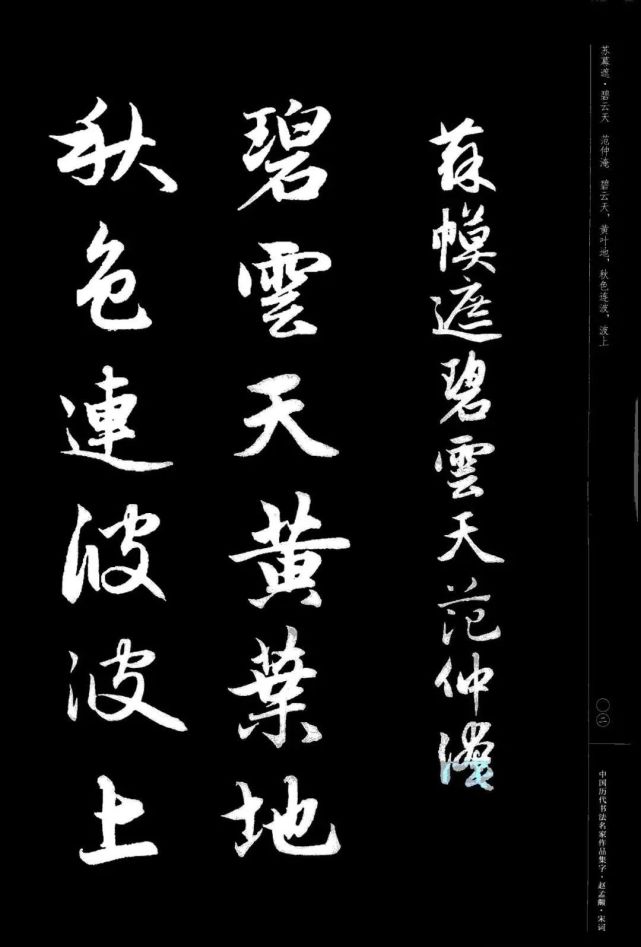 苏幕遮·碧云天 范仲淹 碧云天，黄叶地，秋色连波，波上
〇二
中国历代书法名家作品集字·赵孟頫·宋词
蘇幙遮碧雲天范仲淹
碧雲天黄葉地
秋色連波波上